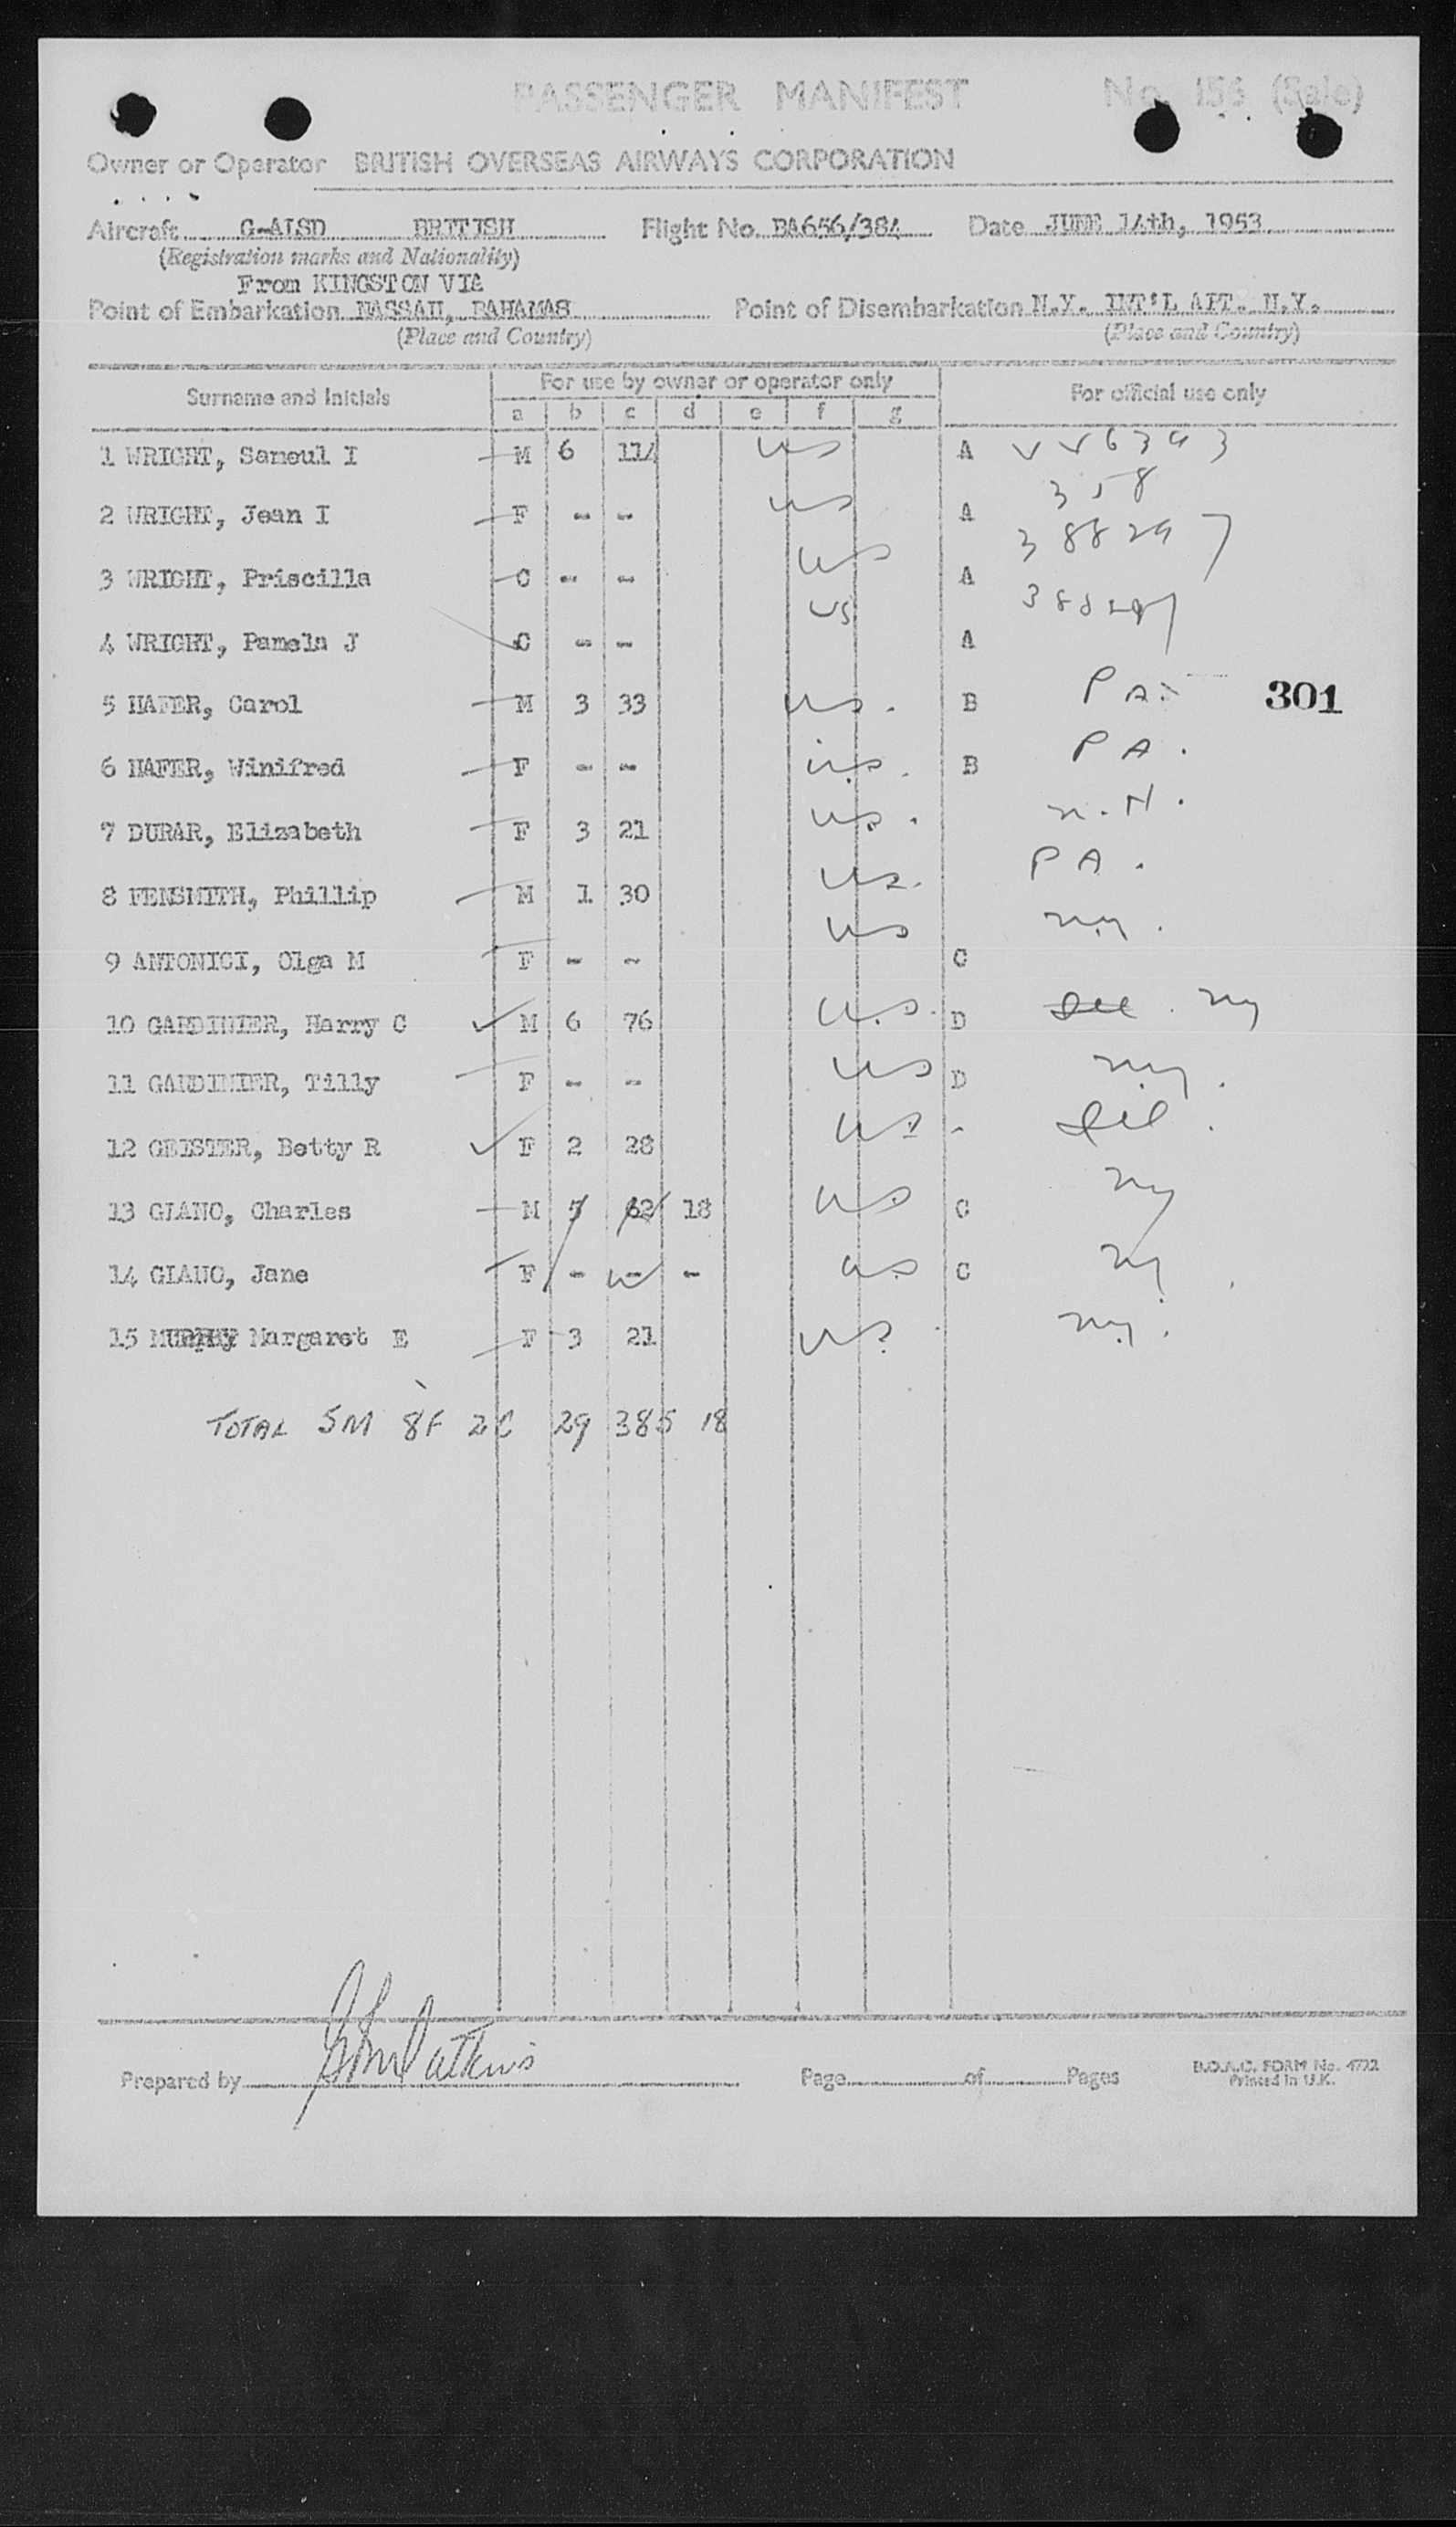 PASSENGER MANIFEST No. 156 (Sale)
Owner or Operator BRITISH OVERSEAS AIRWAYS CORPORATION
Aircraft G-AISD BRITISH Flight No. BA656/384 Date JUNE 14th, 1953
(Registration marks and Nationality)
From KINGSTON VIA
Point of Embarkation NASSAU, BAHAMAS Point of Disembarkation N.Y. INT'L APT. N.Y.
(Place and Country) (Place and Country)
Surname and Initials For use by owner or operator only For official use only
a b c d e f g
1 WRIGHT, Samuel I M 6 114 US A
2 WRIGHT, Jean I F - - US A 358
3 WRIGHT, Priscilla C - - US A 388297
4 WRIGHT, Pamela J C - - US A
5 HAFER, Carol M 3 33 U.S. B PA. 301
6 HAFER, Winifred F - - U.S. B PA.
7 DURAR, Elizabeth F 3 21 U.S. N.H.
8 FENSMITH, Phillip M 1 30 U.S. PA.
9 ANTONICI, Olga M F - - US C NY.
10 GARDINIER, Harry C M 6 76 U.S. D Ill. NY
11 GARDINIER, Tilly F - - US D NY.
12 GEISTER, Betty R F 2 28 US - Ill.
13 GIANO, Charles M 5 62 18 US C NY
14 GIANO, Jane F - - - U.S C NY
15 MURPHY Margaret E F 3 21 U.S. NY.
TOTAL 5M 8F 2C 29 385 18
Prepared by Page of Pages B.O.A.C. FORM No. 4722
Printed in U.K.